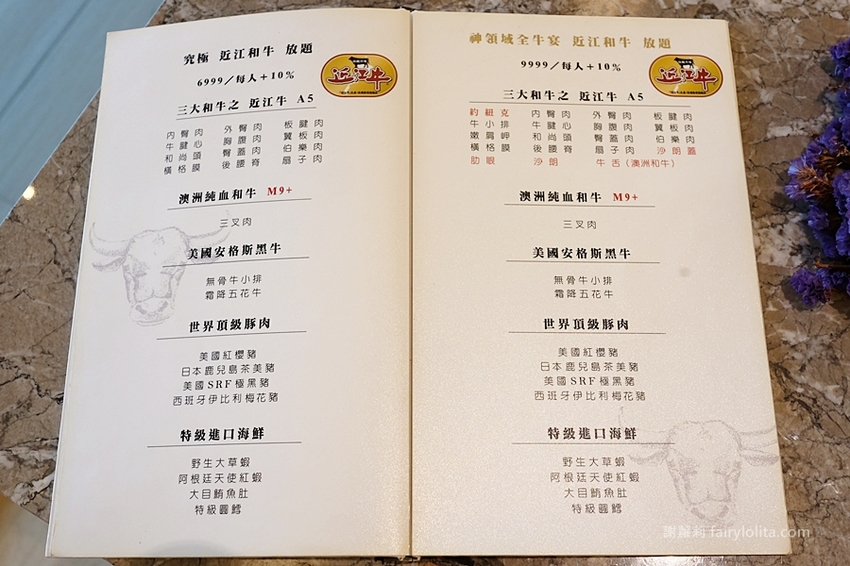 究極 近江和牛 放題
6999／每人＋10%
近江牛
三大和牛之 近江牛 A5
內臀肉 外臀肉 板腱肉
牛腱心 胸腹肉 翼板肉
和尚頭 臀蓋肉 伯樂肉
橫格膜 後腰脊 扇子肉
澳洲純血和牛 M9+
三叉肉
美國安格斯黑牛
無骨牛小排
霜降五花牛
世界頂級豚肉
美國紅櫻豬
日本鹿兒島茶美豬
美國SRF極黑豬
西班牙伊比利梅花豬
特級進口海鮮
野生大草蝦
阿根廷天使紅蝦
大目鮪魚肚
特級圓鱈
神領域全牛宴 近江和牛 放題
9999／每人＋10%
近江牛
三大和牛之 近江牛 A5
紐約克 內臀肉 外臀肉 板腱肉
牛小排 牛腱心 胸腹肉 翼板肉
嫩肩岬 和尚頭 臀蓋肉 伯樂肉
橫格膜 後腰脊 扇子肉 沙朗蓋
肋眼 沙朗 牛舌（澳洲和牛）
澳洲純血和牛 M9+
三叉肉
美國安格斯黑牛
無骨牛小排
霜降五花牛
世界頂級豚肉
美國紅櫻豬
日本鹿兒島茶美豬
美國SRF極黑豬
西班牙伊比利梅花豬
特級進口海鮮
野生大草蝦
阿根廷天使紅蝦
大目鮪魚肚
特級圓鱈
謝蘿莉 fairylolita.com